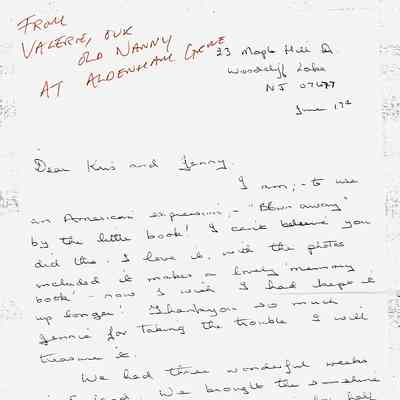 FROM
VALERIE, OUR
OLD NANNY
AT ALDENHAM GROVE
23 Maple Hill D.
Woodcliff Lake
NJ 07677
June 17th
Dear Kris and Jenny.
I am, - to use
an American expression, - "Blown away"
by the little book! I can't believe you
did this. I love it, with the photos
included it makes a lovely 'memory
book' - now I wish I had kept it
up longer! Thankyou so much
Jennie for taking the trouble I will
treasure it.
We had three wonderful weeks
in England. We brought the sunshine